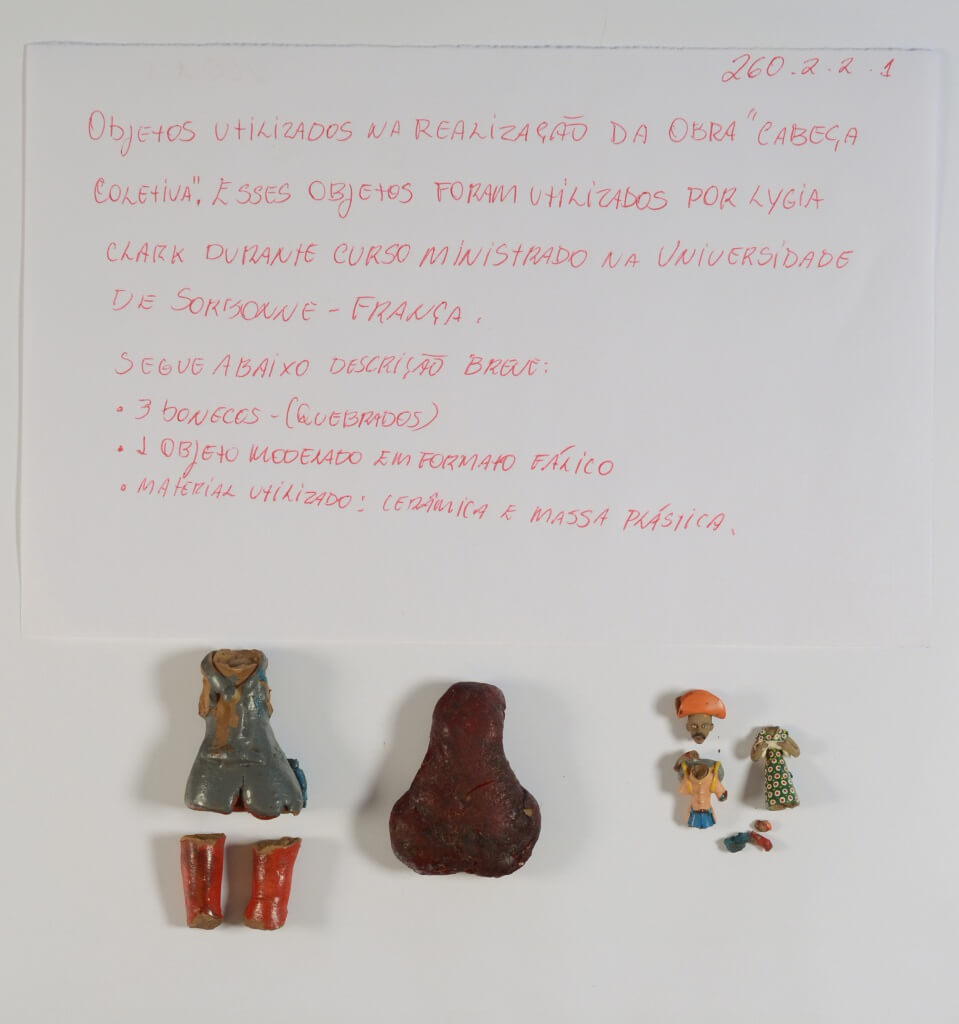 260.2.2.1
OBJETOS UTILIZADOS NA REALIZAÇÃO DA OBRA "CABEÇA
COLETIVA". ESSES OBJETOS FORAM UTILIZADOS POR LYGIA
CLARK DURANTE CURSO MINISTRADO NA UNIVERSIDADE
DE SORBONNE - FRANÇA.
SEGUE ABAIXO DESCRIÇÃO BREVE:
• 3 BONECOS - (QUEBRADOS)
• 1 OBJETO MODELADO EM FORMATO FÁLICO
• MATERIAL UTILIZADO: CERÂMICA E MASSA PLÁSTICA.